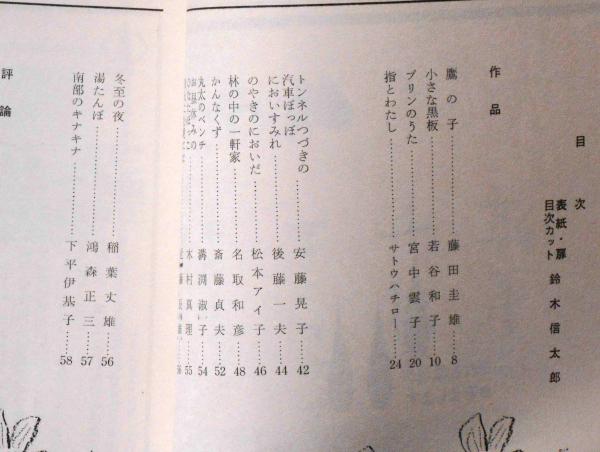 目次
表紙・扉
目次カット
鈴木信太郎
作品
鷹の子……………藤田圭雄…8
小さな黒板…………若谷和子…10
プリンのうた…………宮中雲子…20
指とわたし…………サトウハチロー…24
トンネルつづきの
汽車ぽっぽ…………安藤晃子…42
においすみれ…………後藤一夫…44
のやきのにおいだ…………松本アイ子…46
林の中の一軒家…………名取和彦…48
かんなくず…………斎藤貞夫…52
丸太のベンチ…………溝淵淑子…54
木村真理…55
56
冬至の夜…………稲葉丈雄…56
湯たんぽ…………鴻森正三…57
南部のキナキナ…………下平伊基子…58
評論